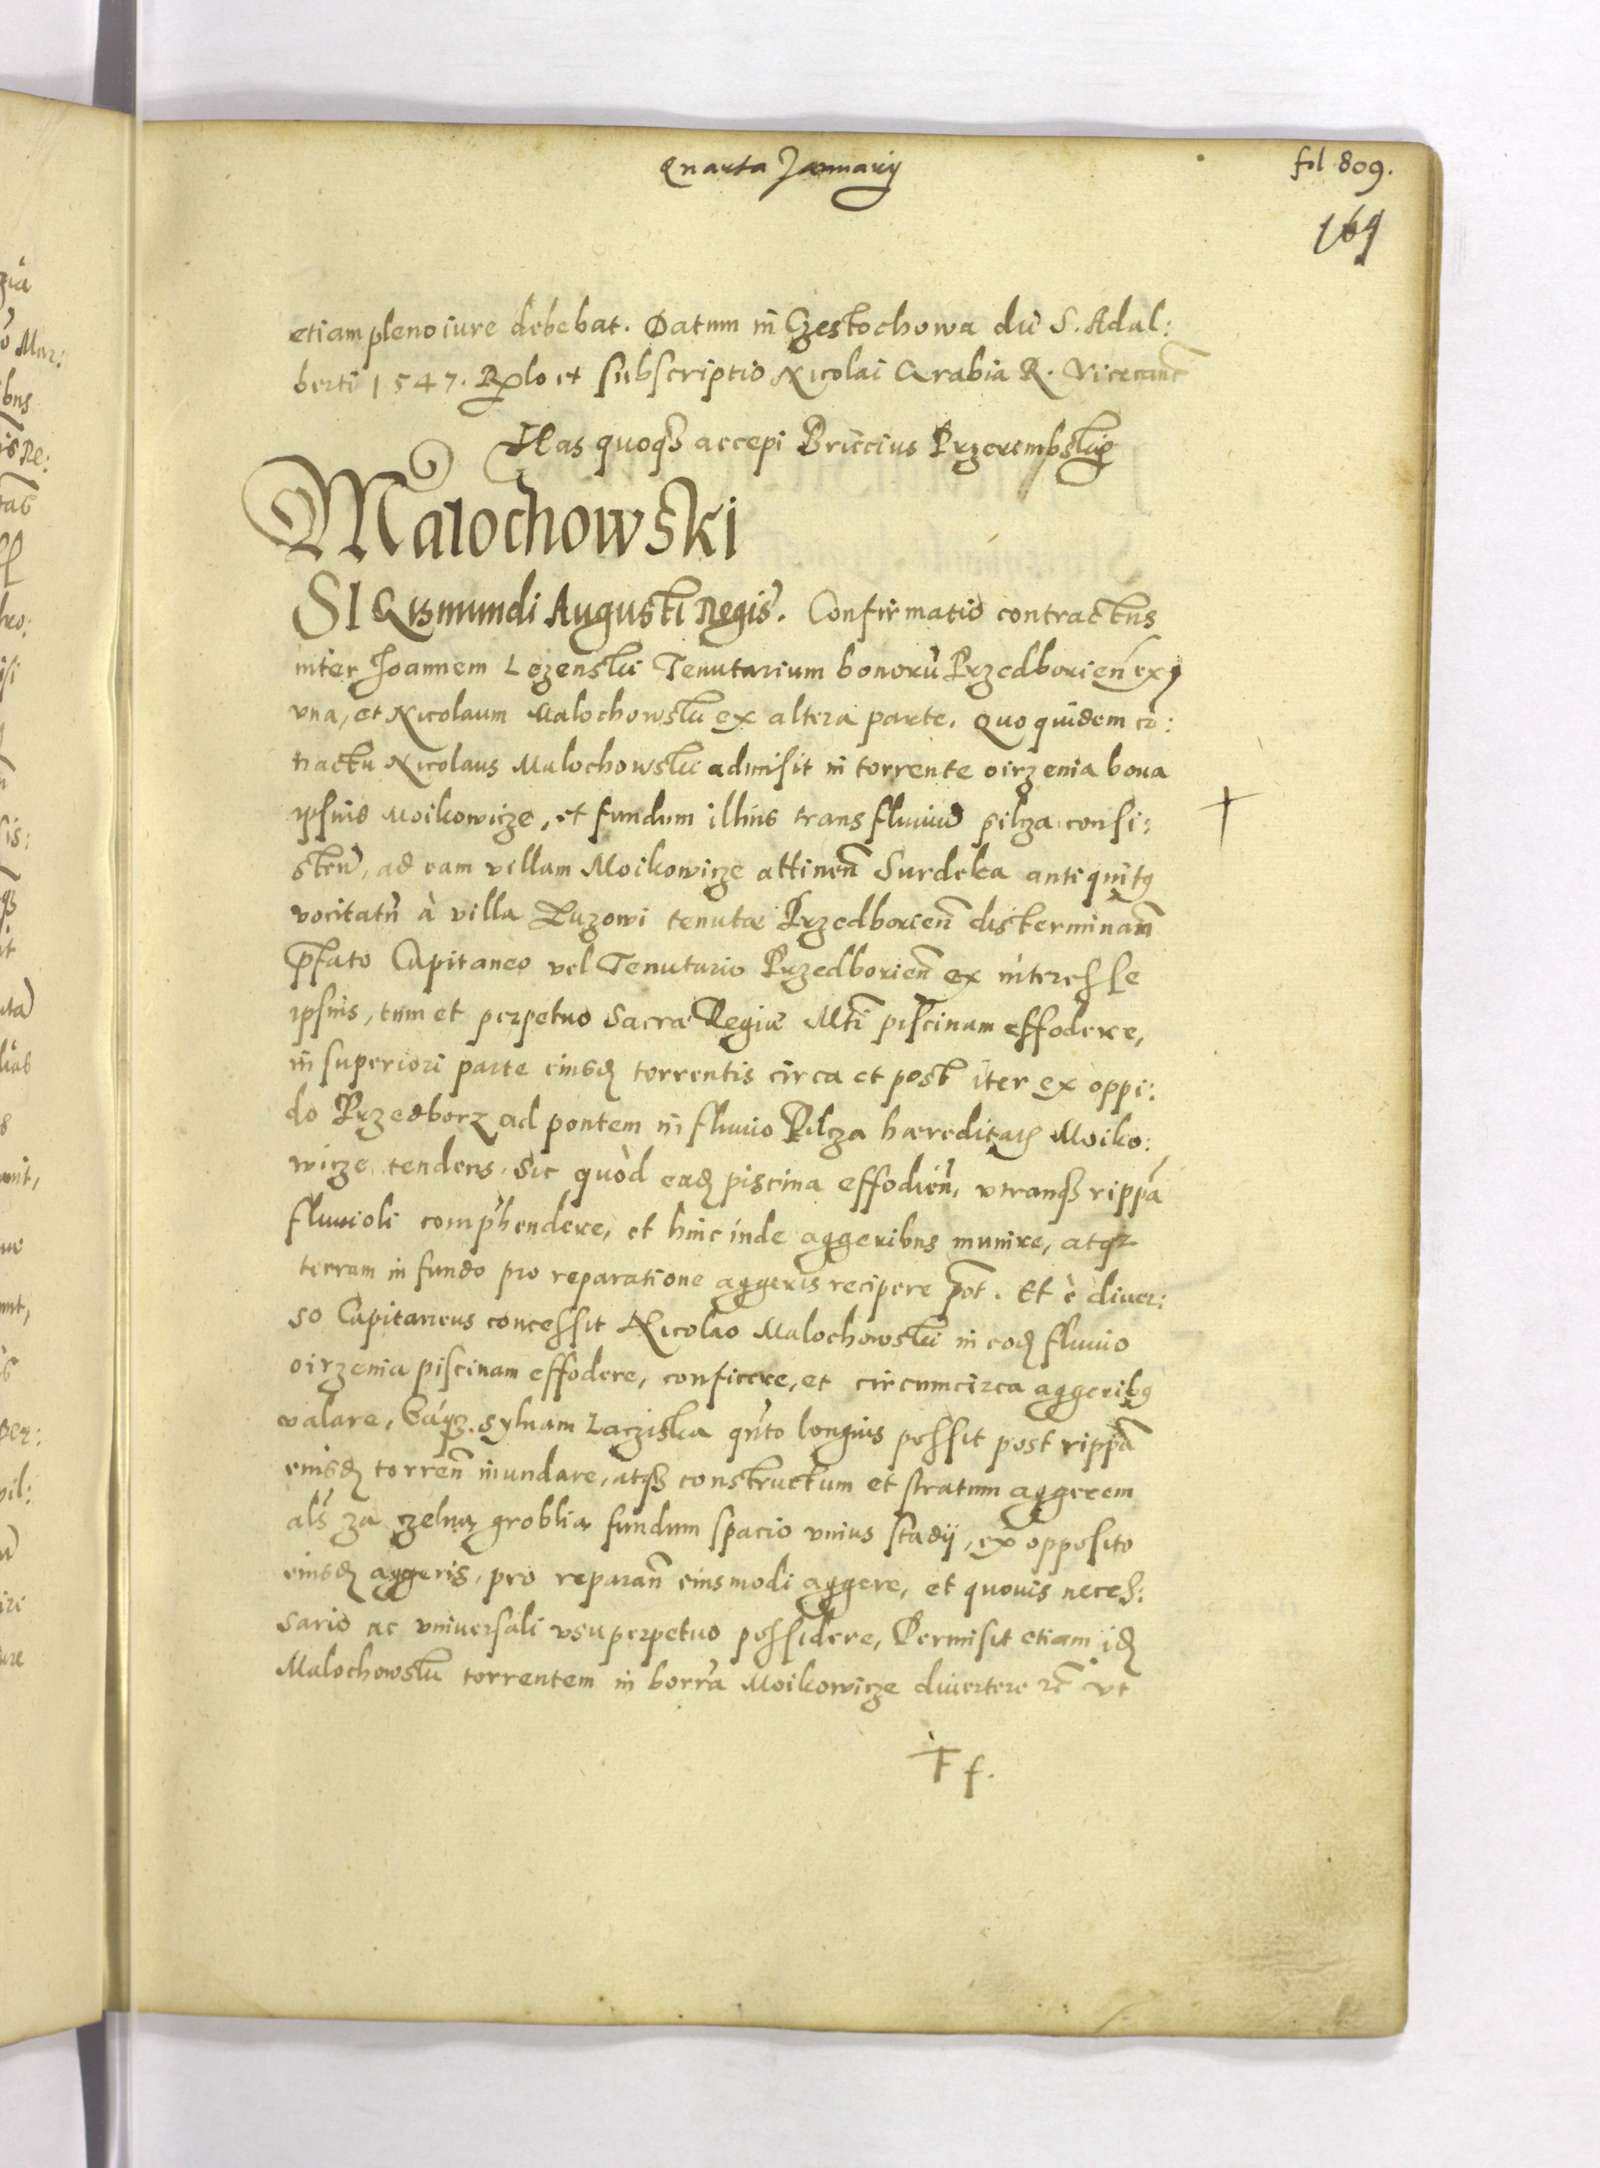 Quarta January
fol 809.
169
etiam pleno iure debebat. Datum in Czestochowa die S. Adal:
berti 1547. et subscriptio Nicolai Grabia R. Vicecanc
Has quoqz accepi Briccius Przerembskj
Malochowski
SIGismundi Augusti Regis. Confirmatio contractus
inter Joannem Lezenski Tenutarium bonorũ Przedborien̄ ex
vna, et Nicolaum Malochowski ex altera parte. Quo quidem cõ:
tractu Nicolaus Malochowski admisit in torrente oirzenia bona
ipsius Moikowicze, et fundum illius trans fluuiũ pilcza consi:
sten̄, ad eam villam Moikowicze attinen̄ Surdeka antiquitꝰ
vocitatũ à villa Luzowi tenutæ Przedborien̄ disterminan̄
p̃fato Capitaneo vel Tenutario Przedborien̄ ex interesse
ipsius, tum et perpetuo Sacræ Regiæ Mti piscinam effodere,
in superiori parte eiusđ torrentis circa et post iter ex oppi:
do Przedborz ad pontem in fluuio Pilcza hæreditatis Moiko:
wicze tendens. Sic quòd eađ piscina effodien̄, vtranqz rippã
fluuioli comp̃hendere, et hinc inde aggeribus munire, atqz
terram in fundo pro reparatione aggeris recipere p̃ot. Et è diuer:
so Capitaneus concessit Nicolao Malochowski in eođ fluuio
oirzenia piscinam effodere, conficere, et circumcirca aggeribꝰ
valare, syluam Lacziska qñto longius possit post rippã
eiusđ torren̄ inundare, atqz constructum et stratum aggerem
als̃ za czelną groblią fundum spacio vnius stadij, ex opposito
eiusđ aggeris, pro reparan̄ eiusmodi aggere, et quouis neces:
sario ac vniuersali vsu perpetuo possidere, Permisit etiam iđ
Malochowski torrentem in borrã Moikowicze diuertere vt
f.